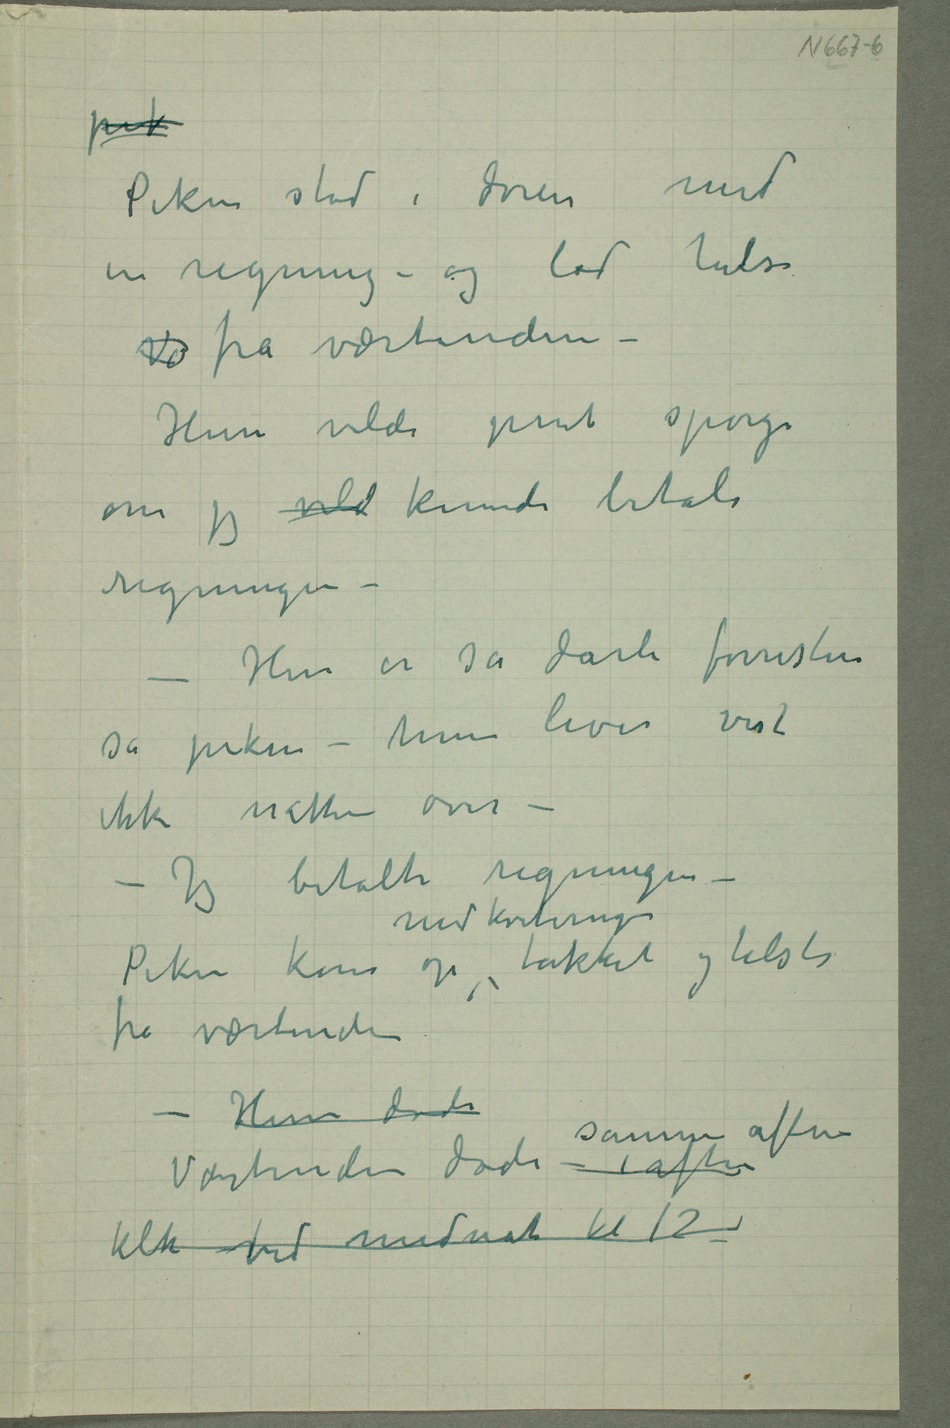 N667-6
pik
Piken stod i døren med
en regning – og lod hilse
fra værtinden –
Hun vilde gjerne spørge
om jeg vild kunde betale
regningen –
– Hun er så dårli forresten
sa piken – hun lever vist
ikke natten over –
– Jeg betalte regningen –
med kviteringen
Piken kom op, takket og hilste
fra værtinden
– Hun døde
samme aften
Værtinden døde – i aften
klk ved midnat kl 12 –